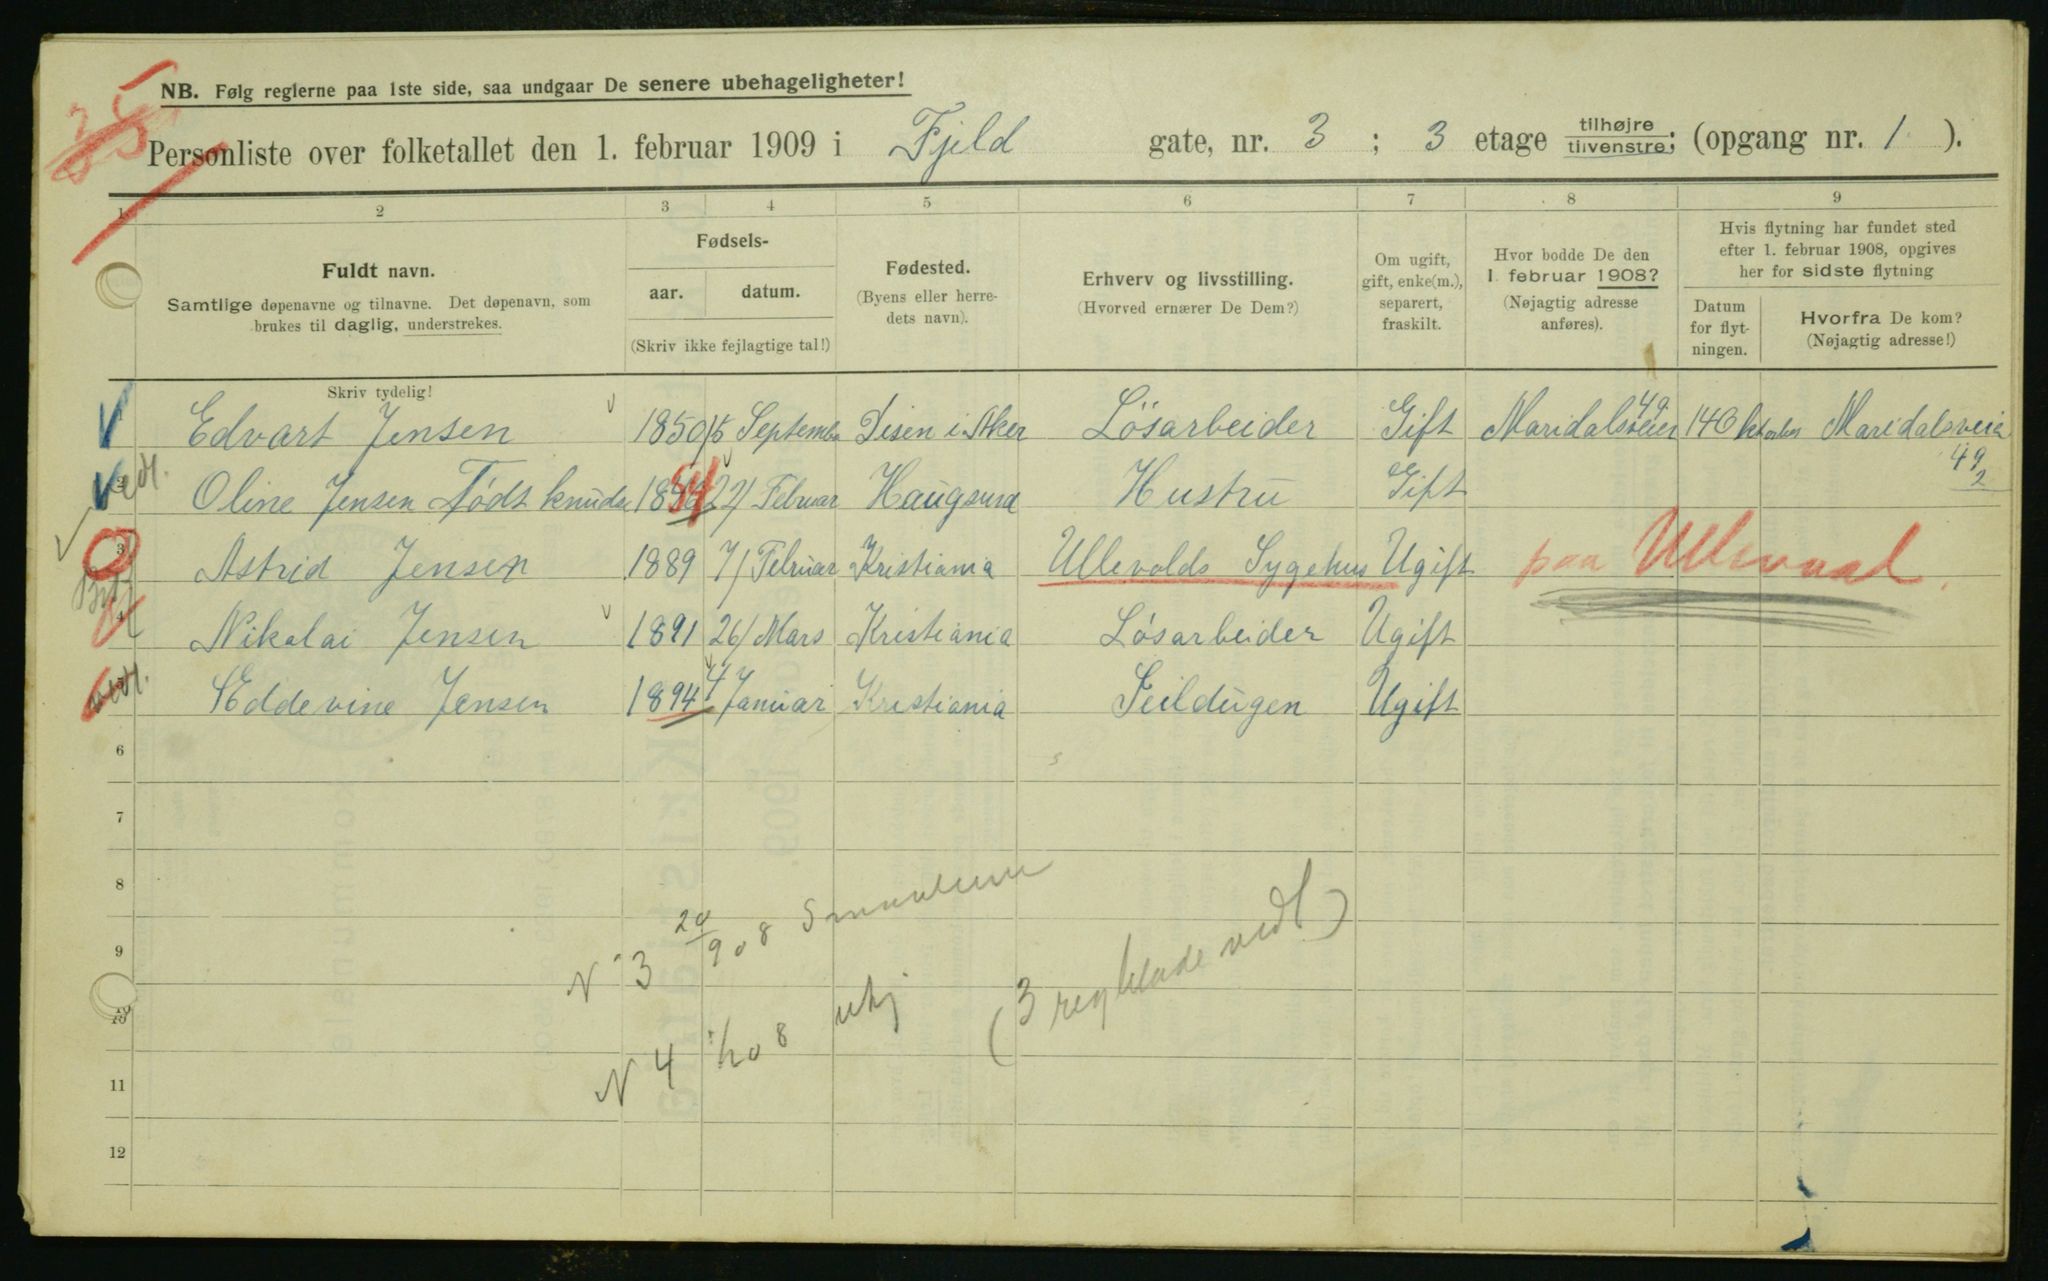 NB. Følg reglerne paa 1ste side, saa undgaar De senere ubehageligheter!
Personliste over folketallet den 1. februar 1909 i Fjeld gate, nr. 3 ; 3 etage tilhøjre tilvenstre; (opgang nr. 1 ).
1 2 3 4 5 6 7 8 9
Fuldt navn.
Samtlige døpenavne og tilnavne. Det døpenavn, som
brukes til daglig, understrekes.
Skriv tydelig!
Fødsels-
aar. datum.
(Skriv ikke fejlagtige tal!)
Fødested.
(Byens eller herre-
dets navn).
Erhverv og livsstilling.
(Hvorved ernærer De Dem?)
Om ugift,
gift, enke(m.),
separert,
fraskilt.
Hvor bodde De den
1. februar 1908?
(Nøjagtig adresse
anføres).
Hvis flytning har fundet sted
efter 1. februar 1908, opgives
her for sidste flytning
Datum
for flyt-
ningen.
Hvorfra De kom?
(Nøjagtig adresse!)
Edvart Jensen 1850 Septembe Disen i Aker Lösarbeider Gift Maridalsveier 49 14 Oktober Maridalsveia 49 2
vedl. Oline Jensen Födt knuds 54 22/ Februar Haugsund Hustru Gift
3 Astrid Jensen 1889 7/ Februar Kristiania Ullevolds Sygehus Ugift paa Ullevaal
4 Nikolai Jensen 1891 26/ Mars Kristiania Lösarbeider Ugift
vedl. Eddevine Jensen 1894 4/ Januar Kristiania Seildugen Ugift
6
7
8
9
10
11
12
N 3 908
N 4 08
(3 regblade vedl)